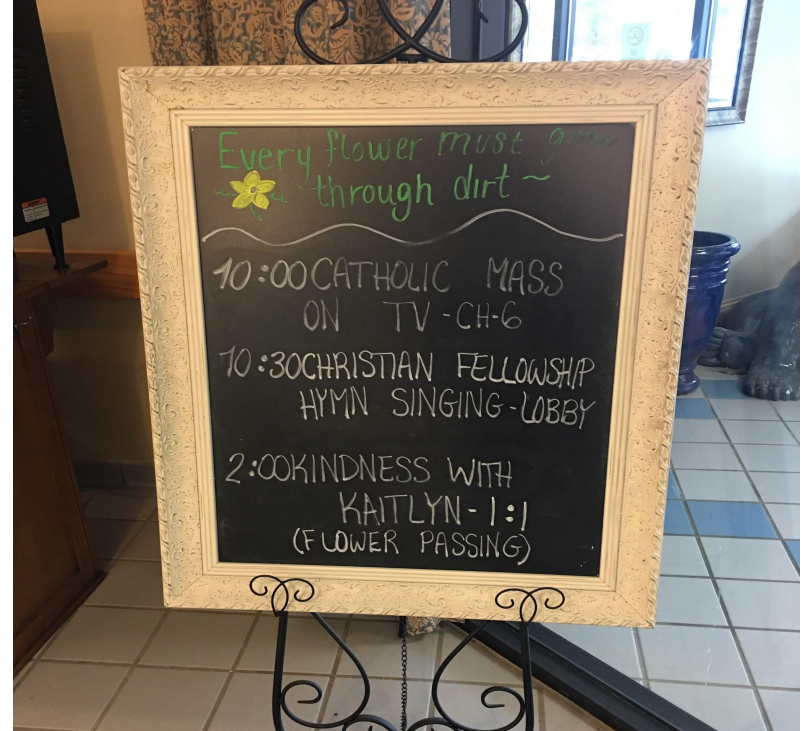 Every flower must grow
through dirt ~
10:00 CATHOLIC MASS
ON TV - CH-6
10:30 CHRISTIAN FELLOWSHIP
HYMN SINGING - LOBBY
2:00 KINDNESS WITH
KAITLYN - 1:1
(FLOWER PASSING)